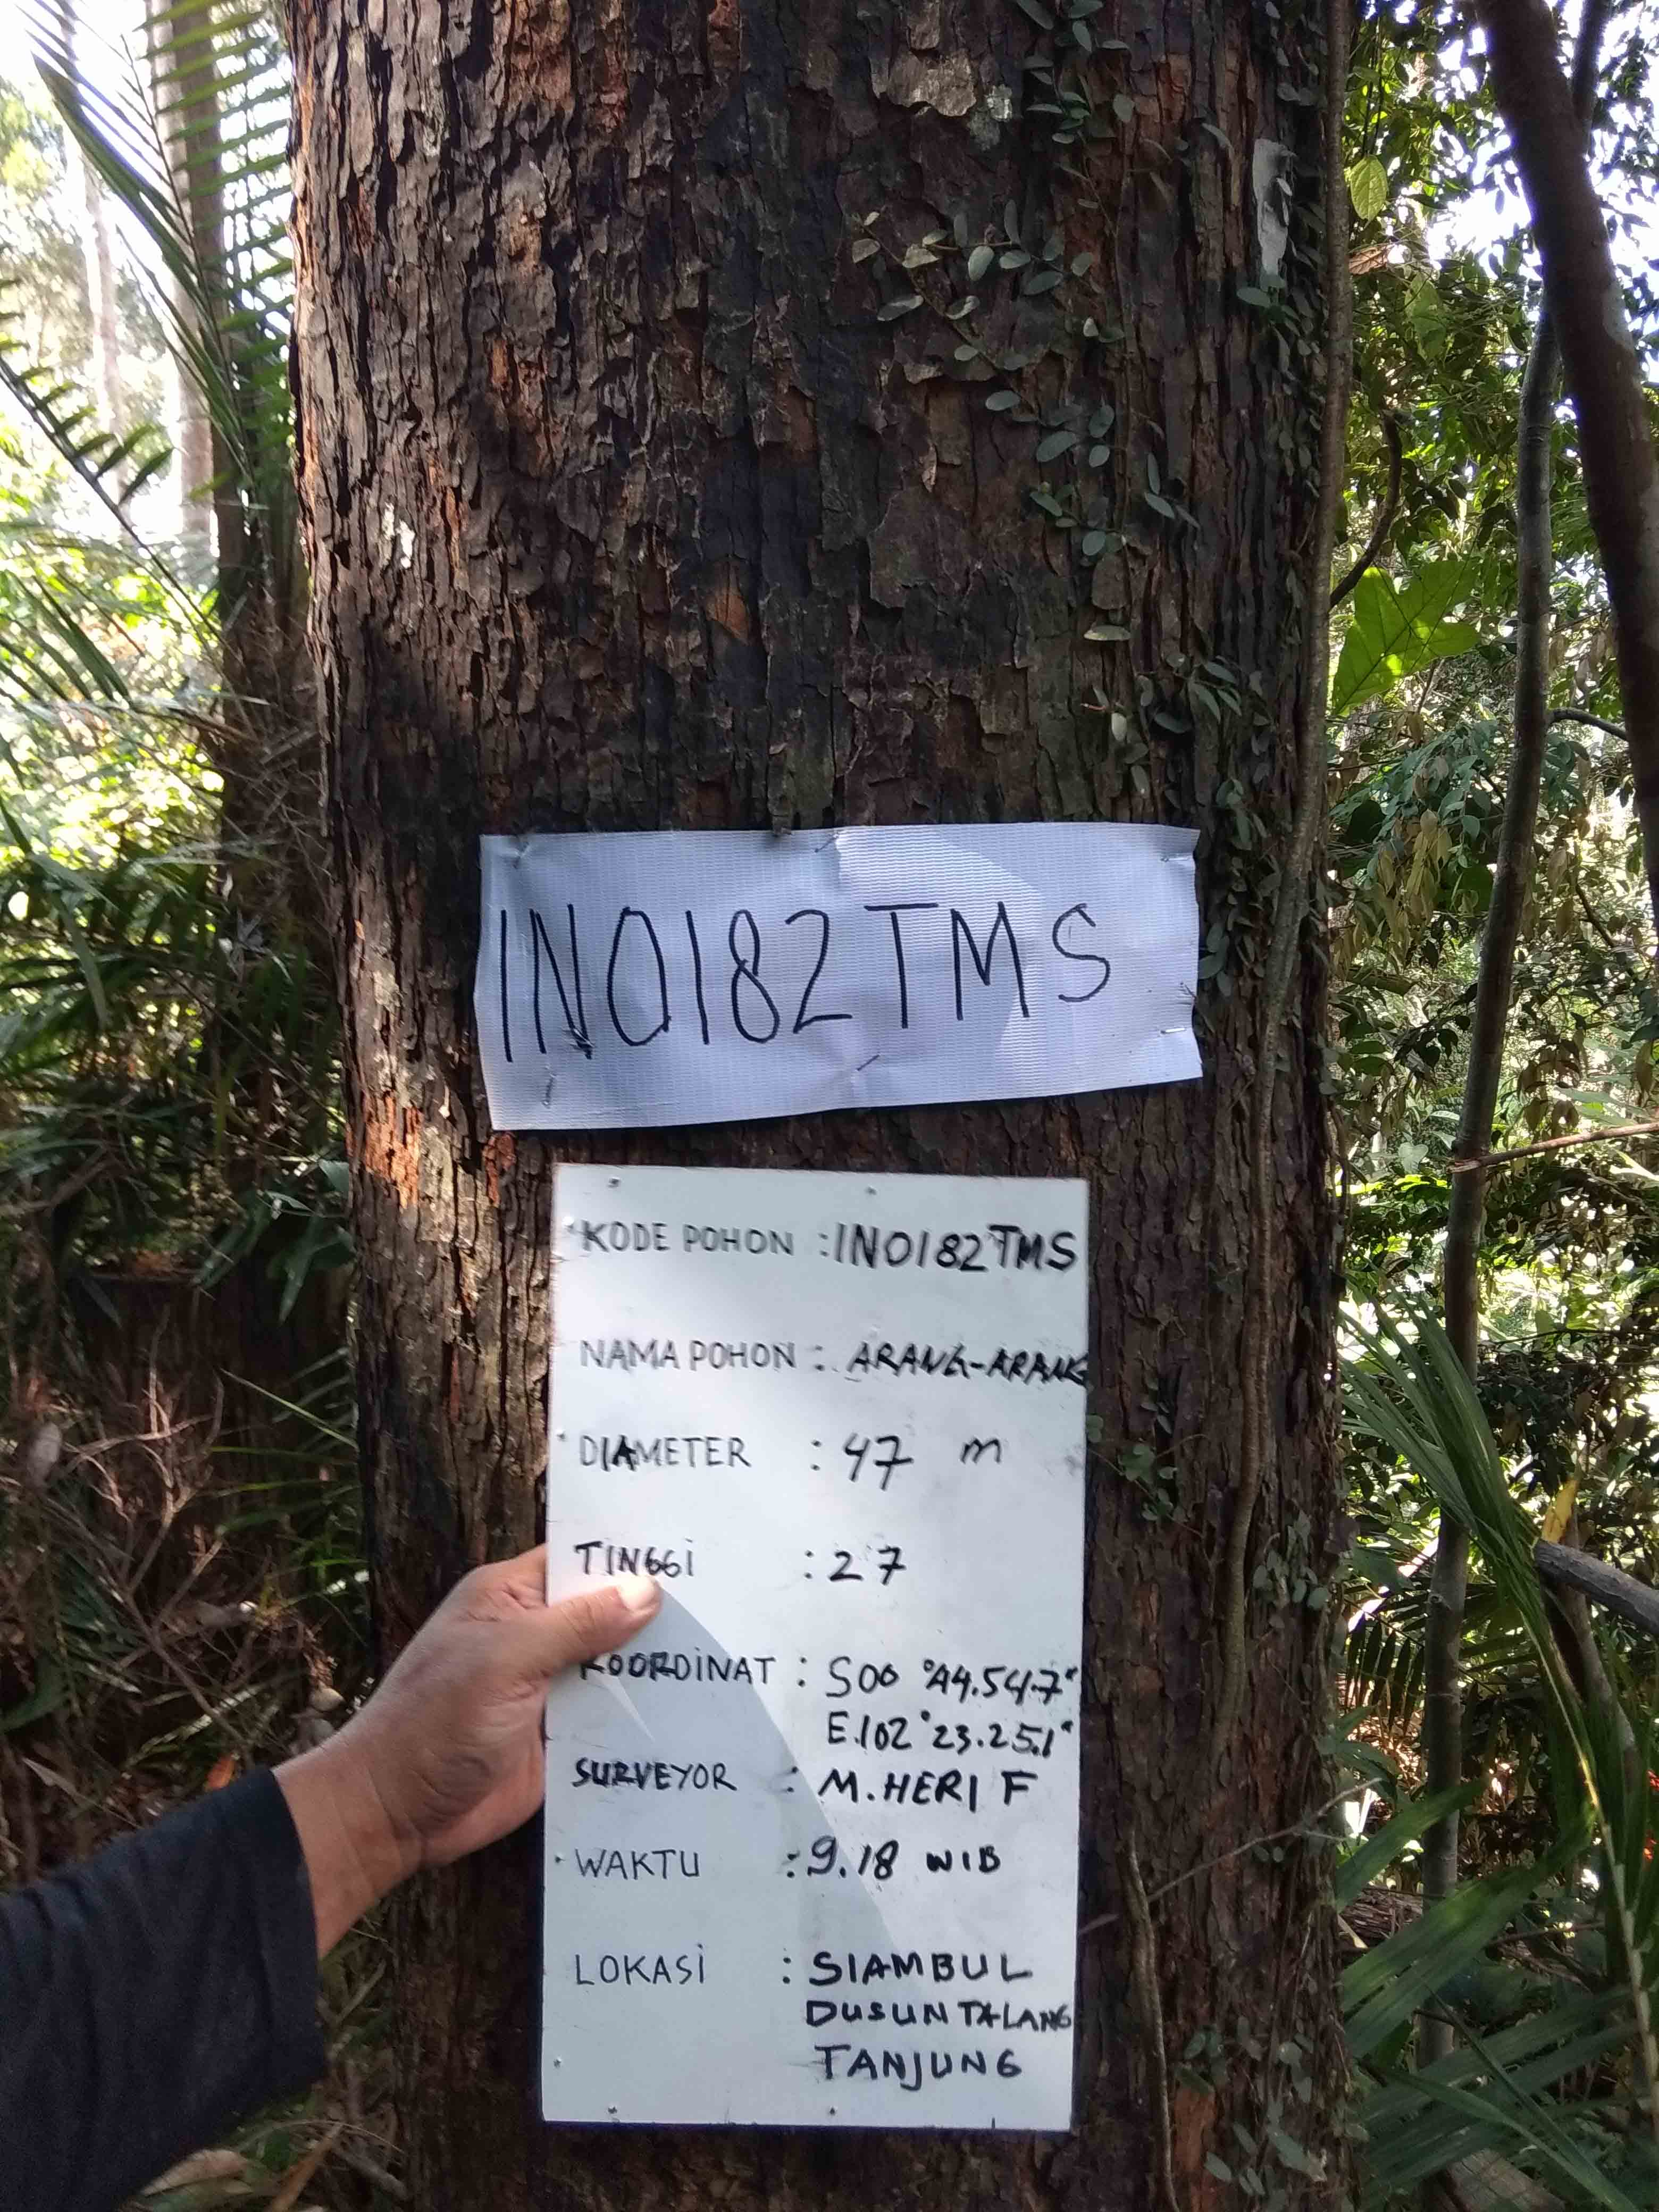 INO182TMS
KODE POHON : INO182TMS
NAMA POHON : ARANG-ARANG
DIAMETER : 47 m
TINGGI : 27
KOORDINAT : S00 °44.547"
E.102°23.251"
SURVEYOR : M.HERI F
WAKTU : 9.18 WIB
LOKASI : SIAMBUL
DUSUN TALANG
TANJUNG